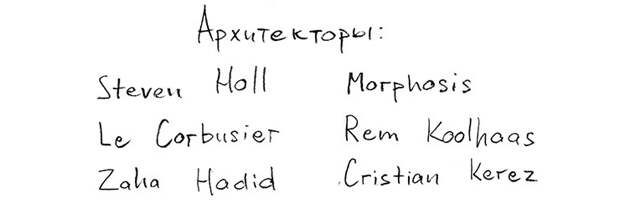 Архитекторы:
Steven Holl
Le Corbusier
Zaha Hadid
Morphosis
Rem Koolhaas
Cristian Kerez